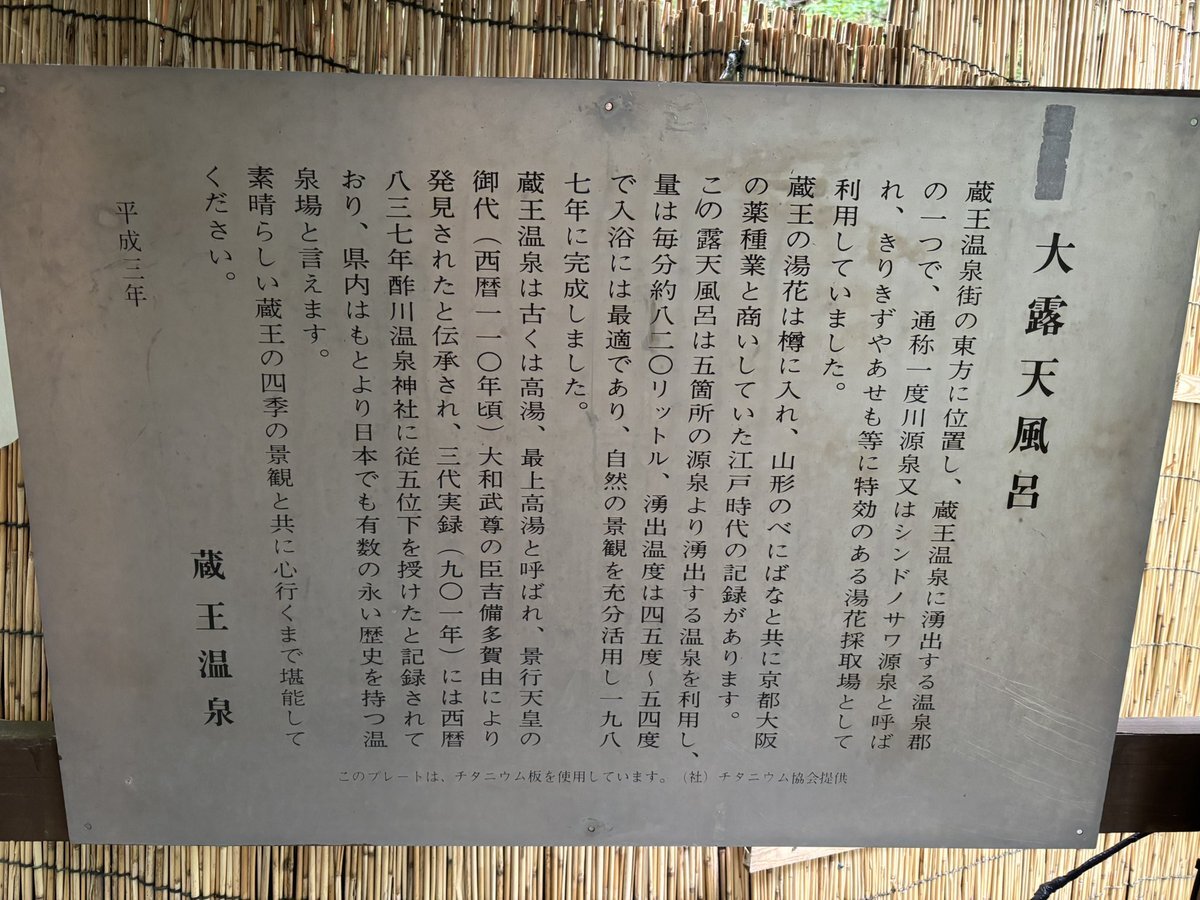 大露天風呂
蔵王温泉街の東方に位置し、蔵王温泉に湧出する温泉郡
の一つで、通称一度川源泉又はシンドノサワ源泉と呼ば
れ、きりきずやあせも等に特効のある湯花採取場として
利用していました。
蔵王の湯花は樽に入れ、山形のべにばなと共に京都大阪
の薬種業と商いしていた江戸時代の記録があります。
この露天風呂は五箇所の源泉より湧出する温泉を利用し、
量は毎分約八二〇リットル、湧出温度は四五度～五四度
で入浴には最適であり、自然の景観を充分活用し一九八
七年に完成しました。
蔵王温泉は古くは高湯、最上高湯と呼ばれ、景行天皇の
御代（西暦一一〇年頃）大和武尊の臣吉備多賀由により
発見されたと伝承され、三代実録（九〇一年）には西暦
八三七年酢川温泉神社に従五位下を授けたと記録されて
おり、県内はもとより日本でも有数の永い歴史を持つ温
泉場と言えます。
素晴らしい蔵王の四季の景観と共に心行くまで堪能して
ください。
平成三年
蔵王温泉
このプレートは、チタニウム板を使用しています。（社）チタニウム協会提供